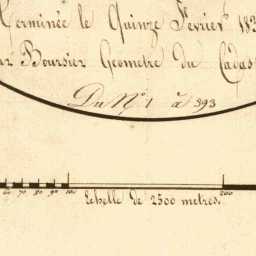 Terminée le Quinze Fevrier 183
Boursier Geometre du Cadas
Du N° 1 à 393
70 80 90 100 200
Echelle de 2500 metres.